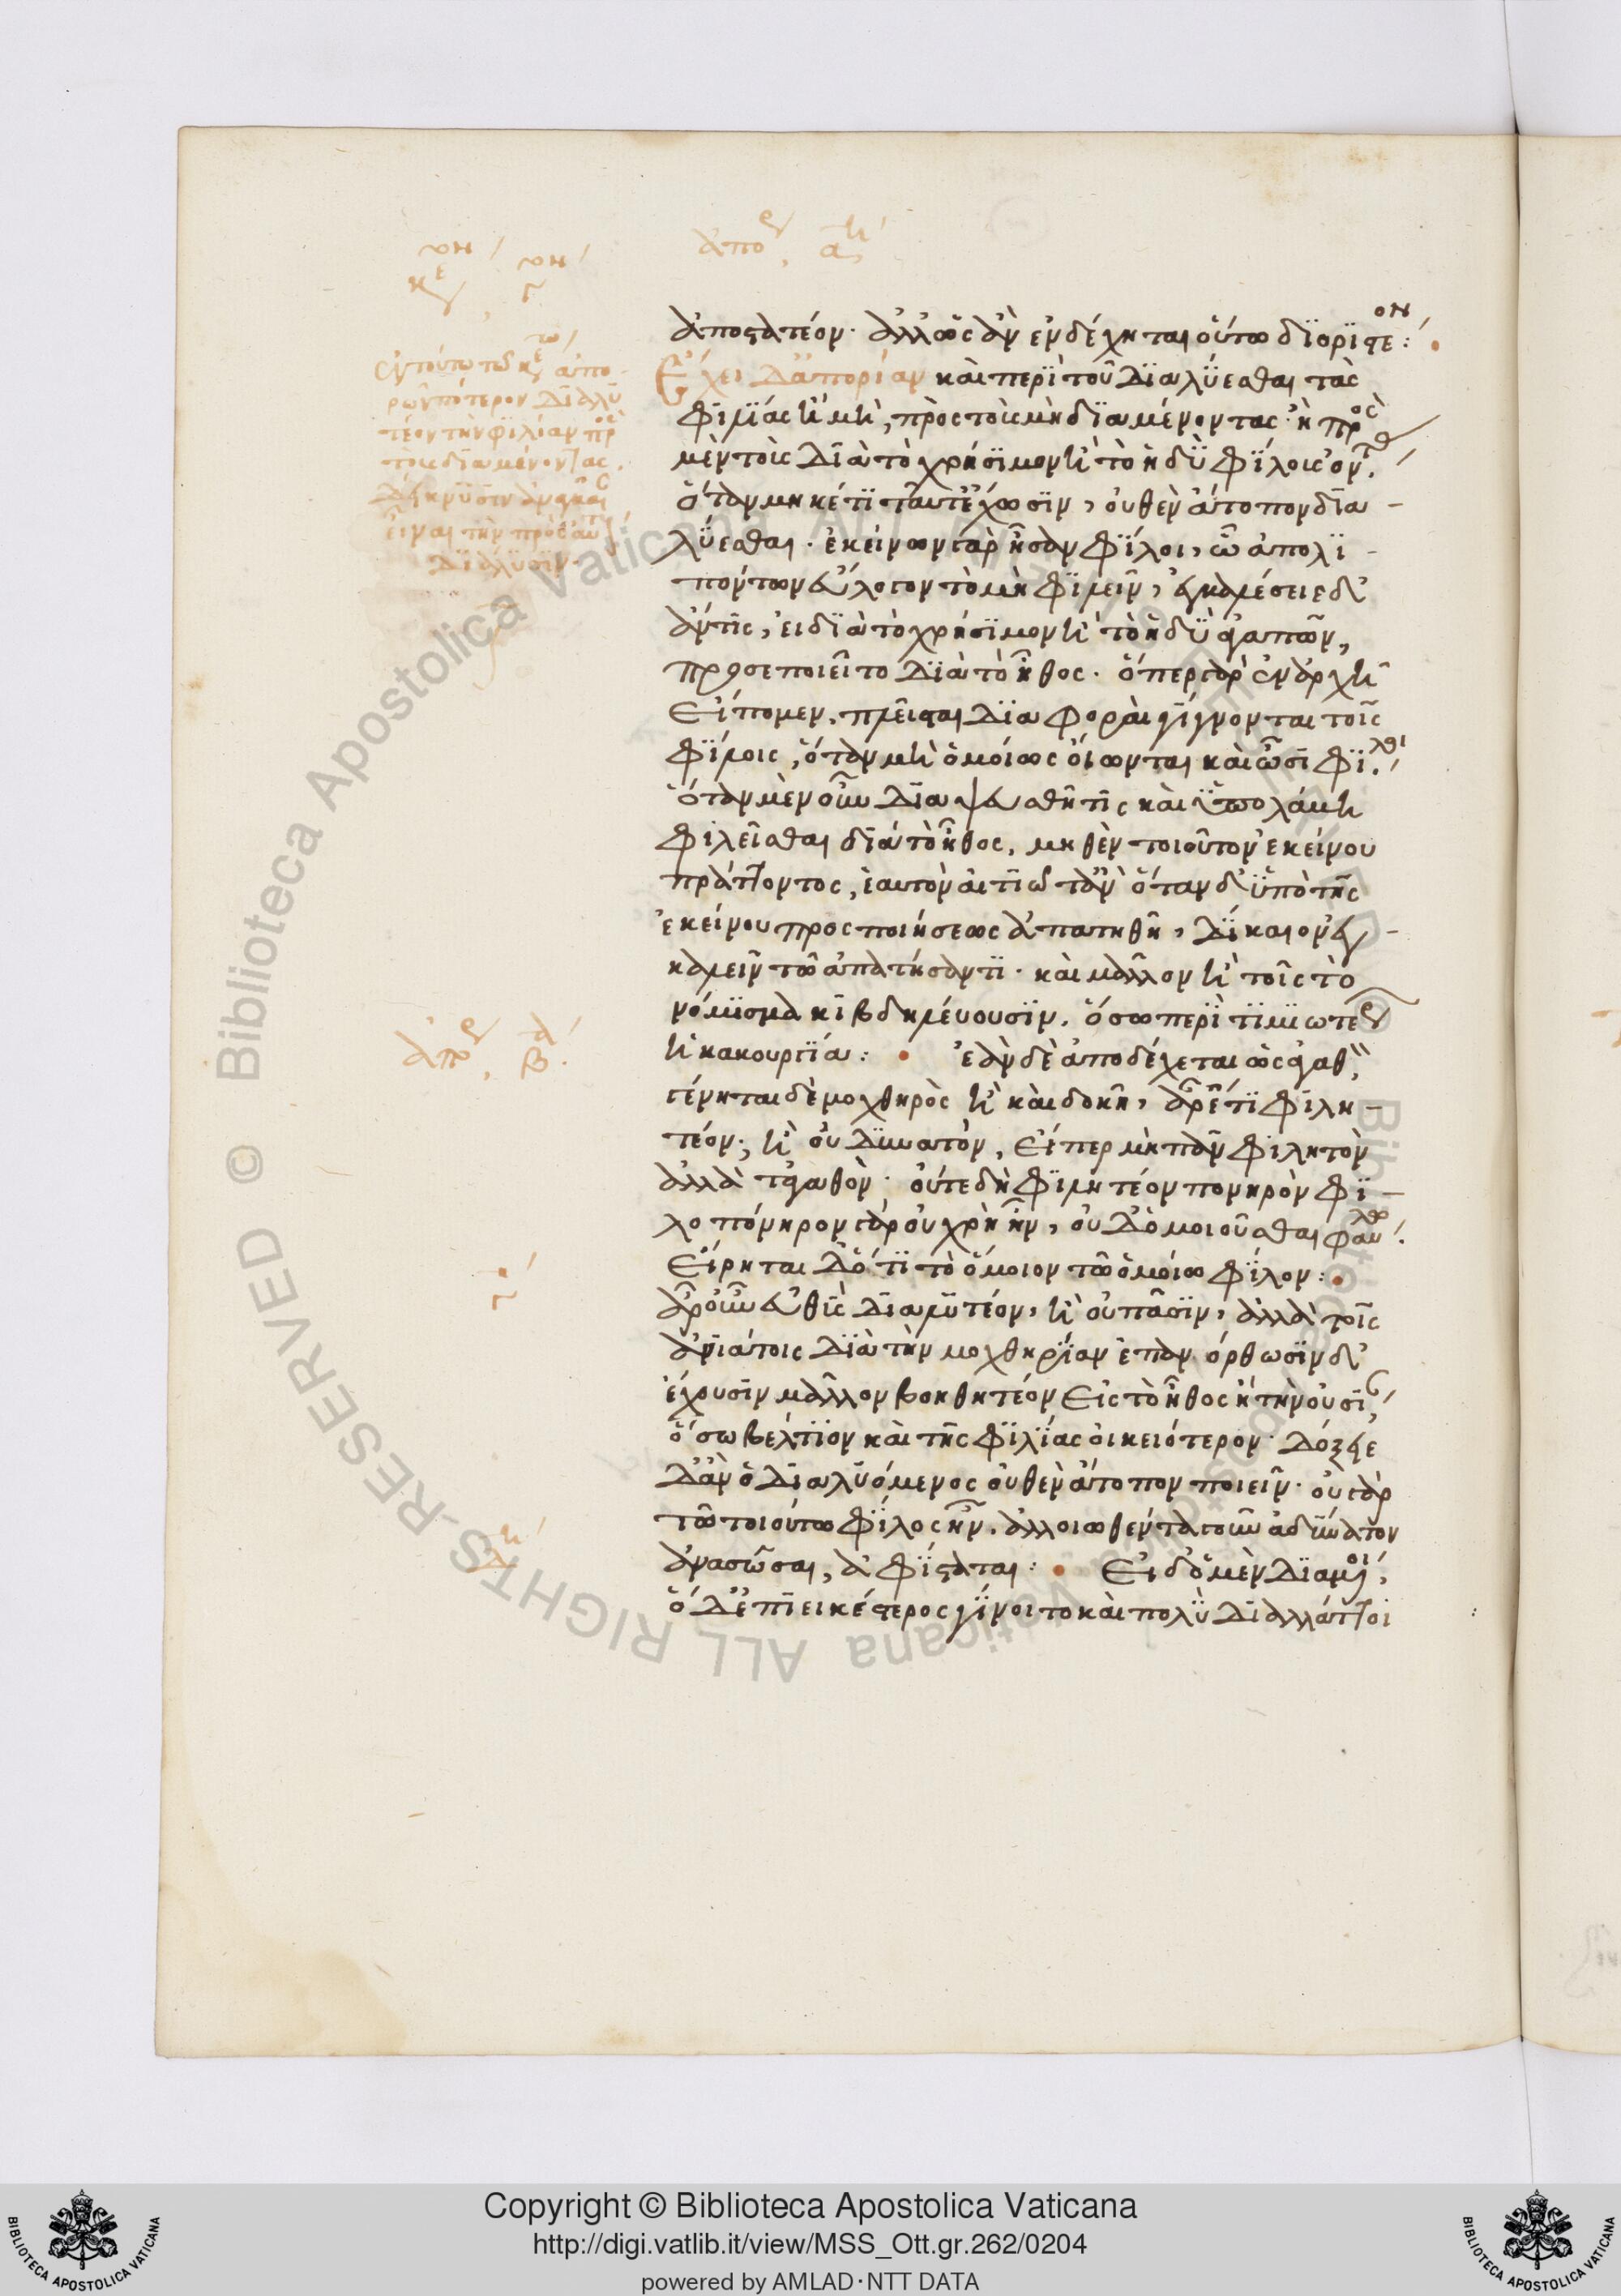 ἀποστατέον. ἀλλ' ὡς ἂν ἐνδέχηται οὕτω διοριστέον:
Ἔχει δ' ἀπορίαν καὶ περὶ τοῦ διαλύεσθαι τὰς
φιλίας ἢ μὴ, πρὸς τοὺς μὴ διαμένοντας. ἢ πρὸς
μὲν τοὺς διὰ τὸ χρήσιμον ἢ τὸ ἡδὺ φίλους ὄντας.
ὅταν μηκέτι ταῦτ' ἔχωσιν, οὐθὲν ἄτοπον δια-
λύεσθαι. ἐκείνων γὰρ ἦσαν φίλοι, ὧν ἀπολι-
πόντων εὔλογον τὸ μὴ φιλεῖν, ἐγκαλέσειε δ'
ἄν τις, εἰ διὰ τὸ χρήσιμον ἢ τὸ ἡδὺ ἀγαπῶν,
προσεποιεῖτο διὰ τὸ ἦθος. ὅπερ γὰρ ἐν ἀρχῇ
εἴπομεν, πλεῖσται διαφοραὶ γίγνονται τοῖς
φίλοις, ὅταν μὴ ὁμοίως οἴωνται καὶ ὦσι φίλοι.
ὅταν μὲν οὖν διαψευσθῇ τις καὶ ὑπολάβῃ
φιλεῖσθαι διὰ τὸ ἦθος, μηθὲν τοιοῦτον ἐκείνου
πράττοντος, ἑαυτὸν αἰτιῷτ' ἄν ὅταν δ' ὑπὸ τῆς
ἐκείνου προσποιήσεως ἀπατηθῇ, δίκαιον ἐγ-
καλεῖν τῷ ἀπατήσαντι. καὶ μᾶλλον ἢ τοῖς τὸ
νόμισμα κιβδηλεύουσιν. ὅσῳ περὶ τιμιώτερον
ἡ κακουργία: ἐὰν δὲ ἀποδέχεται ὡς ἀγαθὸν,
γένηται δὲ μοχθηρὸς ἢ καὶ δοκῇ, ἆρ' ἔτι φιλη-
τέον; ἢ οὐ δυνατὸν, εἴπερ μὴ πᾶν φιλητὸν
ἀλλὰ τἀγαθὸν. οὔτε δὴ φιλητέον πονηρὸν φι-
λοπόνηρον γὰρ οὐ χρὴ ἦν, οὐδ' ὁμοιοῦσθαι φαύλῳ.
εἴρηται δ' ὅτι τὸ ὅμοιον τῷ ὁμοίῳ φίλον:
ἆρ' οὖν εὐθὺς διαλυτέον, ἢ οὐ πᾶσιν, ἀλλὰ τοῖς
ἀνιάτοις διὰ τὴν μοχθηρίαν ἐπαν όρθωσιν δ'
ἔχουσιν μᾶλλον βοηθητέον εἰς τὸ ἦθος ἢ τὴν οὐσίαν,
ὅσῳ βέλτιον καὶ τῆς φιλίας οἰκειότερον. δόξειε
δ' ἂν ὁ διαλυόμενος οὐθὲν ἄτοπον ποιεῖν. οὐ γὰρ
τῷ τοιούτῳ φίλος ἦν. ἀλλοιωθέντα γοῦν ἀδύνατον
ἀνασῶσαι, ἀφίσταται: Εἰ δ' ὁ μὲν διαμένοι,
ὁ δ' ἐπιεικέστερος γίνοιτο καὶ πολὺ διαλλάττοι
ἐν τούτῳ τῷ ἀπο-
ρῶν πότερον διαλυ
τέον τὴν φιλίαν πρὸς
τοὺς διαμένοντας.
διάλυσιν.
Copyright © Biblioteca Apostolica Vaticana
http://digi.vatlib.it/view/MSS_Ott.gr.262/0204
powered by AMLAD·NTT DATA
BIBLIOTECA APOSTOLICA VATICANA
BIBLIOTECA APOSTOLICA VATICANA
© Biblioteca Apostolica Vaticana ALL RIGHTS RESERVED